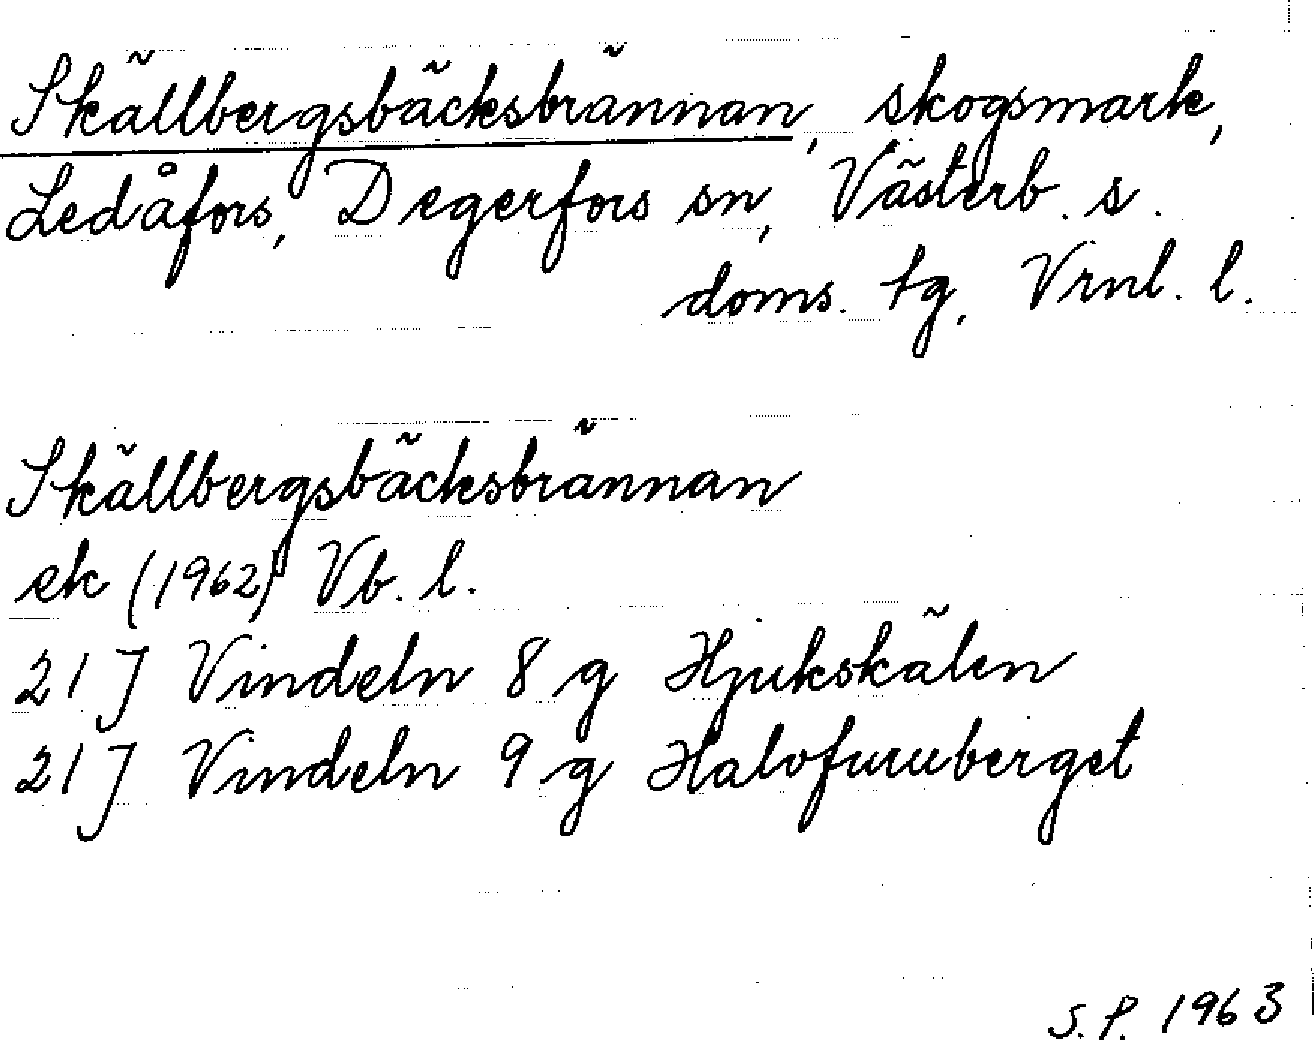 Skällbergsbäcksbrännan, skogsmark,
Ledåfors, Degerfors sn, Västerb. s.
doms. tg, Vrnl. l.
Skällbergsbäcksbrännan
ek (1962) Vb. l.
21 J Vindeln 8 g Hjukskälen
21 J Vindeln 9 g Halofuruberget
S.P. 1963